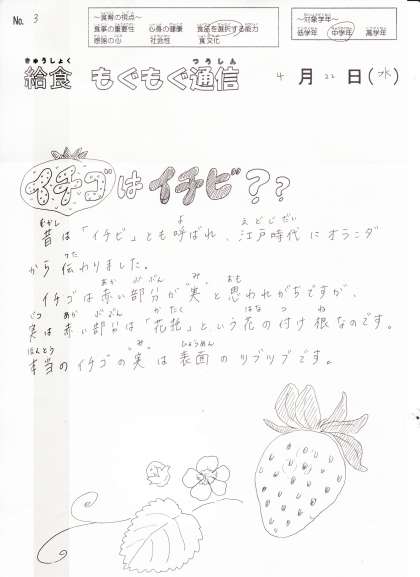 No. 3
～食育の視点～
食事の重要性 心身の健康 食品を選択する能力
感謝の心 社会性 食文化
～対象学年～
低学年 中学年 高学年
きゅうしょく つうしん
給食 もぐもぐ通信 4月22日(水)
イチゴはイチビ??
むかし よ えどじだい
昔は「イチビ」とも呼ばれ、江戸時代にオランダ
つた
から伝わりました。
あか ぶぶん み おも
イチゴは赤い部分が"実"と思われがちですが、
じつ あか ぶぶん かたく はな つ ね
実は赤い部分は「花托」という花の付け根なのです。
ほんとう み ひょうめん
本当のイチゴの"実"は表面のツブツブです。